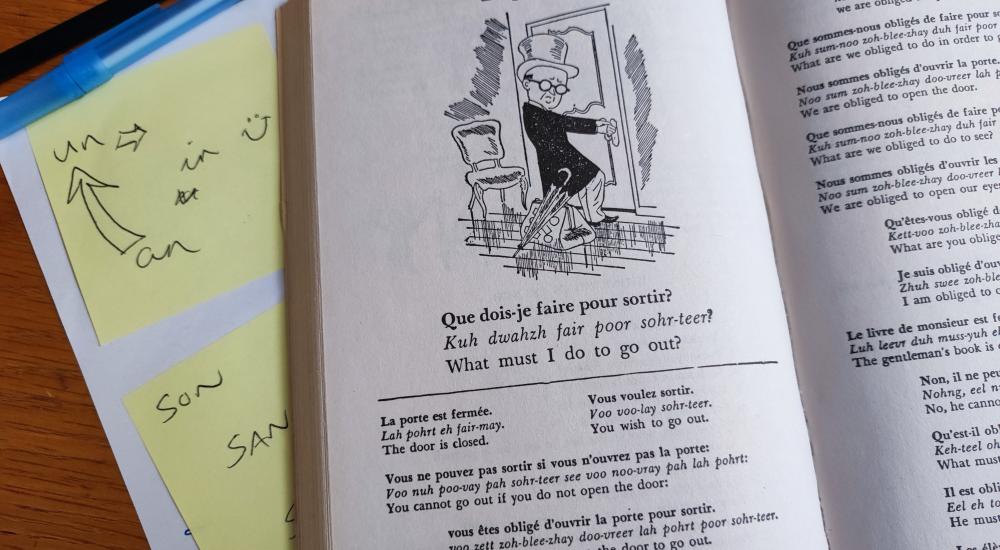 un
in
an
SON
SAN
Que dois-je faire pour sortir?
Kuh dwahzh fair poor sohr-teer?
What must I do to go out?
La porte est fermée.
Lah pohrt eh fair-may.
The door is closed.
Vous voulez sortir.
Voo voo-lay sohr-teer.
You wish to go out.
Vous ne pouvez pas sortir si vous n'ouvrez pas la porte:
Voo nuh poo-vay pah sohr-teer see voo noo-vray pah lah pohrt:
You cannot go out if you do not open the door:
vous êtes obligé d'ouvrir la porte pour sortir.
voo zett zoh-blee-zhay doo-vreer lah pohrt poor sohr-teer.
the door to go out.
we are
Que sommes-nous obligés de faire pour
Kuh sum-noo zoh-blee-zhay duh fair poor
What are we obliged to do in order to
Nous sommes obligés d'ouvrir la porte.
Noo sum zoh-blee-zhay doo-vreer lah
We are obliged to open the door.
Que sommes-nous obligés de faire
Kuh sum-noo zoh-blee-zhay duh fair
What are we obliged to do to see?
Nous sommes obligés d'ouvrir les
Noo sum zoh-blee-zhay doo-vreer
We are obliged to open our
Qu'êtes-vous obligé
Kett-voo zoh-blee-zhay
What are you obliged
Je suis obligé
Zhuh swee zoh-blee-zhay
I am obliged to
Le livre de monsieur est
Luh leevr duh muss-yuh
The gentleman's book is
Non, il ne
Nohng, eel
No, he
Qu'est-il
Keh-teel
What
Il est
Eel eh
He must